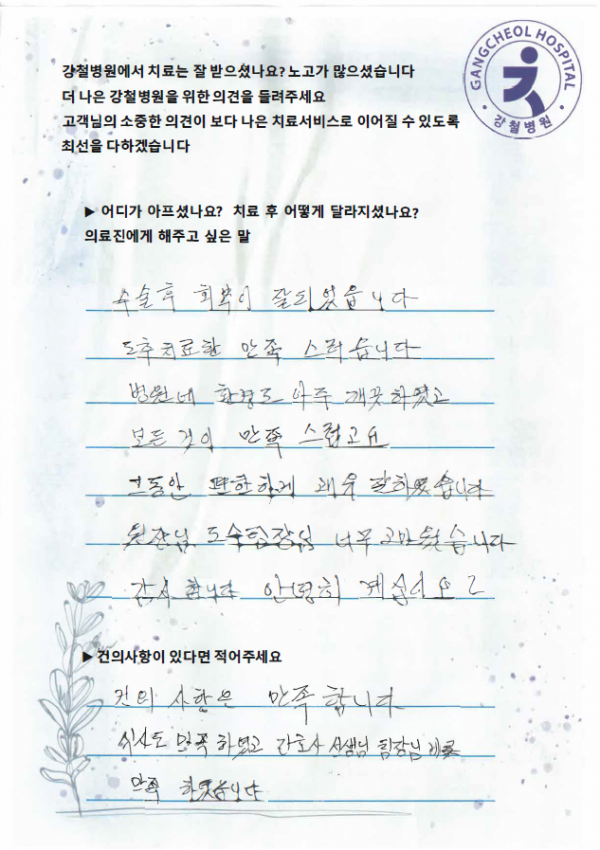 GANGCHEOL HOSPITAL
강철병원
강철병원에서 치료는 잘 받으셨나요? 노고가 많으셨습니다
더 나은 강철병원을 위한 의견을 들려주세요
고객님의 소중한 의견이 보다 나은 치료서비스로 이어질 수 있도록
최선을 다하겠습니다
▶ 어디가 아프셨나요? 치료 후 어떻게 달라지셨나요?
의료진에게 해주고 싶은 말
수술후 회복이 잘되었습니다
만족 스럽습니다
병원네 환경도 아주 깨끗하였고
모든 것이 만족 스럽고요
그동안 편한하게 잘하였습니다
원장님 도수팀장님 너무 고마웠습니다
감사 합니다 안녕히 계십시요
▶ 건의사항이 있다면 적어주세요
건의 사항은 만족 합니다
식사도 만족 하였고 간호사 선생님 팀장님
만족 하였습니다